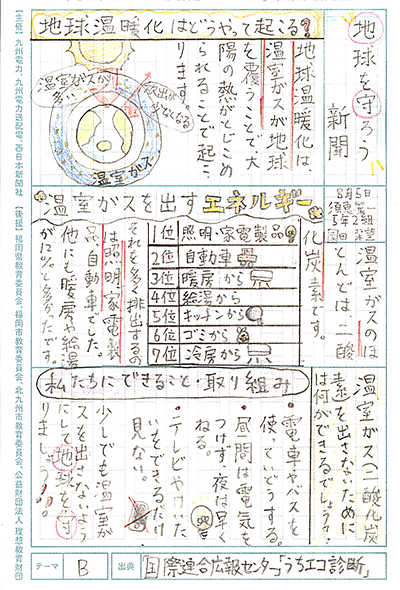 地球を守ろう
新聞
8月5日
須恵第一
5年2組
地球温暖化はどうやって起こる?
地球温暖化は、
温室がスが地球
を覆うことで太
陽の熱がとじこめ
られることで起こ
ります。
温室ガスが
多い
放出が
少なくなる
温室ガス
温室ガスを出すエネルギー
温室ガスのほ
とんどは、二酸
化炭素です。
1位 照明・家電製品
2位 自動車
3位 暖房から
4位 給湯から
5位 キッチンから
6位 ゴミから
7位 冷房から
それを多く排出するの
は照明家電製
品、自動車でした。
他にも暖房や給湯
が12%と多かったです。
私たちにできること・取り組み
温室ガス(二酸化炭
素を出さないために
は何ができるでしょう?
・電車やバスを
使っていどうする。
・昼間は電気を
つけず、夜は早く
ねる。
・テレビやけいた
いをできるだけ
見ない。
少しでも温室が
スを出さないよう
にして地球を守
りましょう!!
テーマ B 出典 国際連合広報センター「うちエコ診断」
【主催】九州電力、九州電力送配電、西日本新聞社 【後援】福岡県教育委員会、福岡市教育委員会、北九州市教育委員会、公益財団法人 理想教育財団